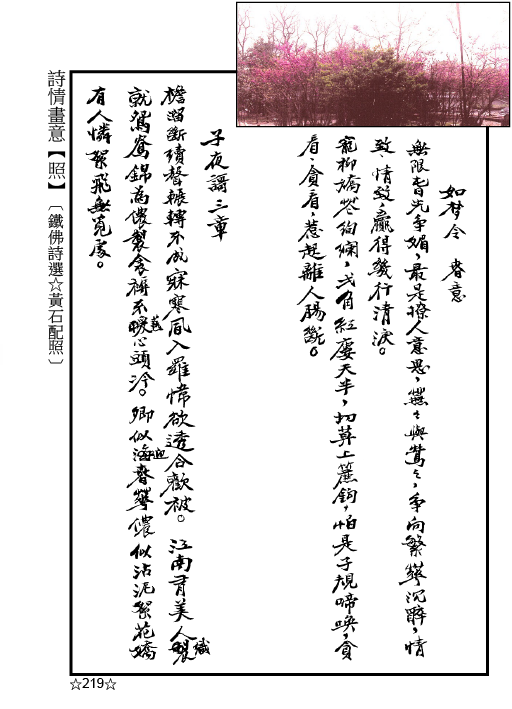 如梦令 春意
無限春光争媚，最是撩人意思，燕々與鶯々，争向繁華沉醉，情
致、情致，贏得幾行清淚。
寵柳嬌花絢爛，弍角紅廔天半，切莫上簾鈎，怕是子規啼唤，貪
看、貪看，惹起離人腸斷。
子夜謌三章
檐溜斷續聲輾轉不成寐寒風入羅幃欲透合歡被。 江南有美人織
就鴛鴦錦為儂製衾裯不暖心頭冷。卿似迎春華儂似沾泥絮花嬌
有人憐絮飛無覓處。
詩情畫意【照】〔鐵佛詩選☆黃石配照〕
☆219☆